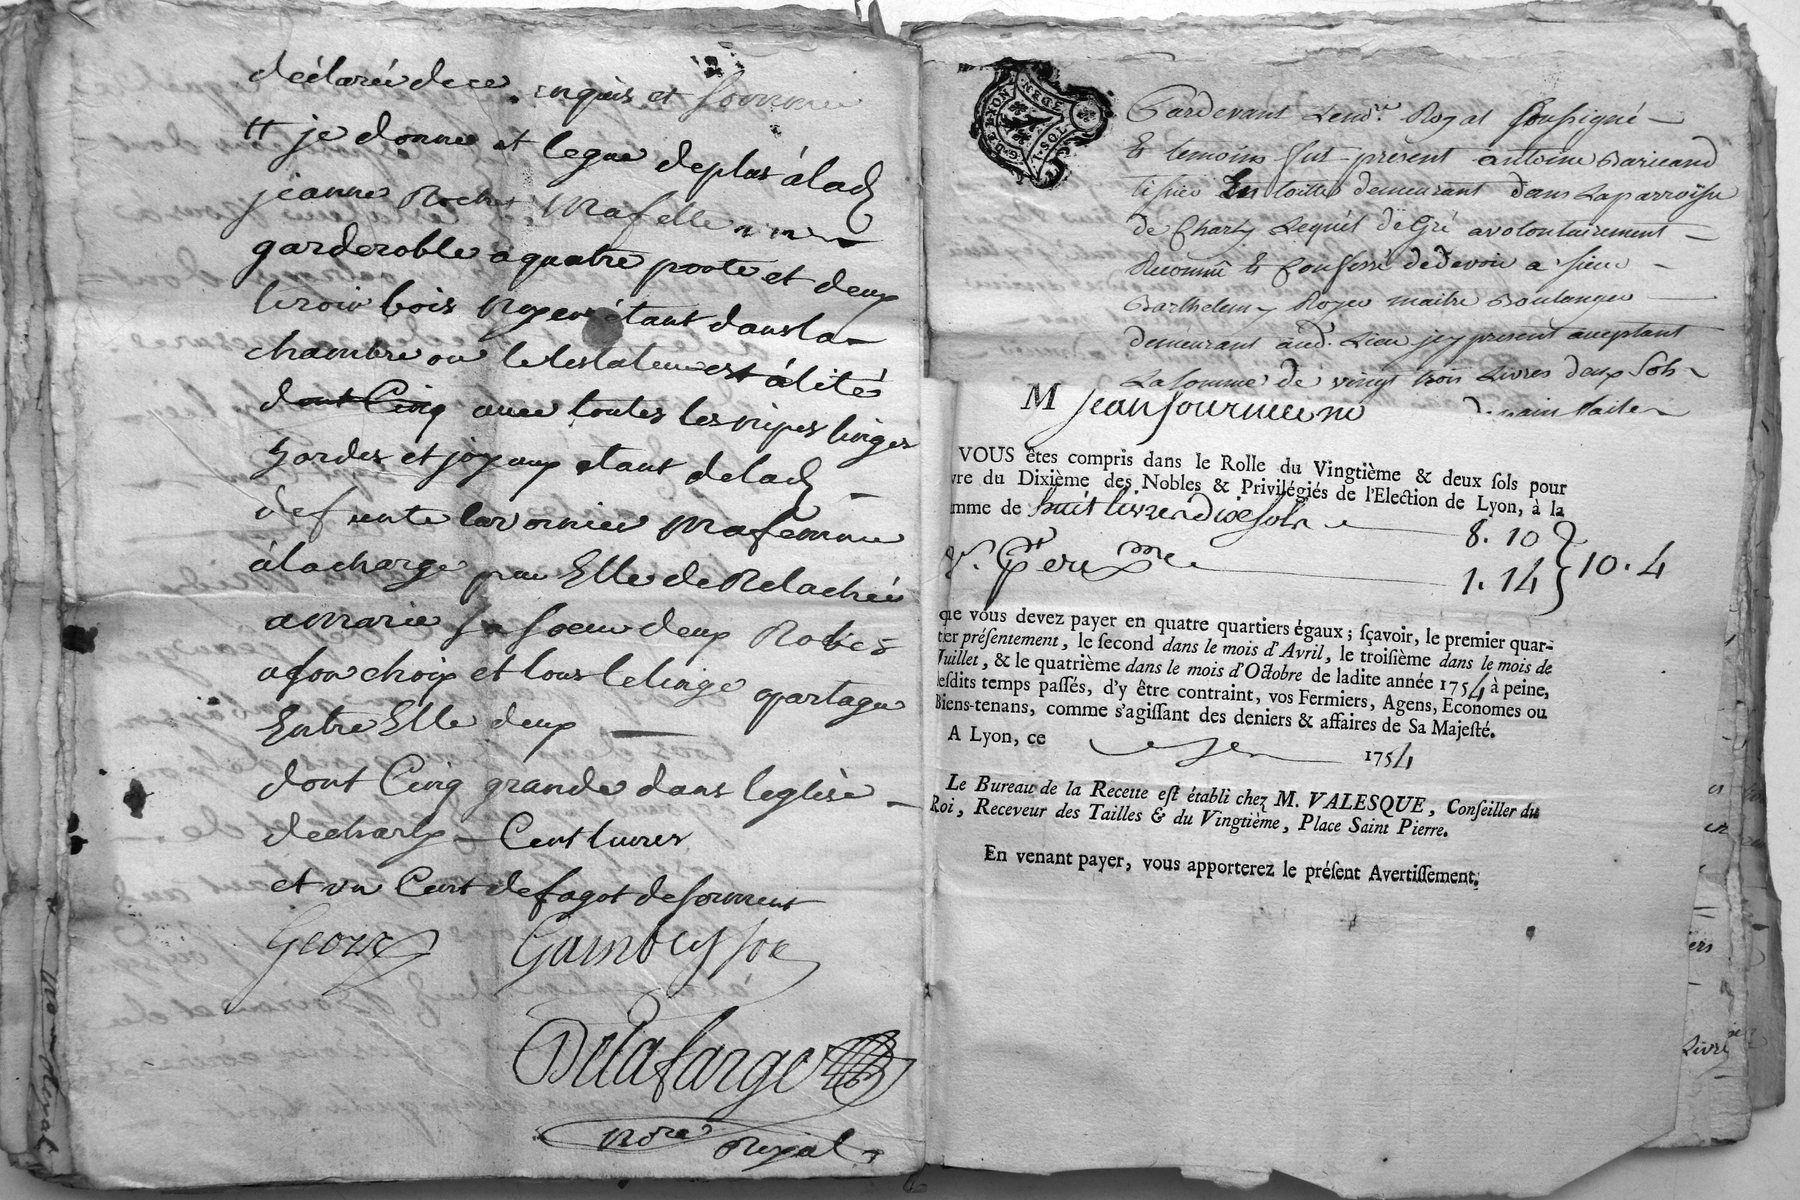 déclaré de ce enquis et sommé
tt je donne et legue deplus àlad
jeanne Rochet Mafille une
garderoble a quatre porte et deux
tiroir bois Noyer étant dansla
chambre ou letestateur est àlité
dont Cinq avec toutes les nipes linges
hardes et joyaux étant delad
defunte lavornier Mafemme
àlacharge par Elle deRelacher
amarie sa soeur deux Robes
ason choix et tous lelinge apartager
Entre Elle deux
dont Cinq grande dans leglise
decharly Cent livres
et un Cent defagot desarment
Gambeysson
Delafarge
Nore Royal
G.D.LYON
GENED.
1.SOL
Pardevant Lenore Royal soussigné
& temoins fut present antoine
demeurant dans Laparroisse
de Charly Lequel de Gré avolontairement
Reconnu & Confessé de devoir a sieur
Barthelemy Royer maitre Boulanger
demeurant aud. Lieu icy present acceptant
Lasomme de vingt trois Livres deux sols
M jean
VOUS êtes compris dans le Rolle du Vingtième & deux sols pour
vre du Dixième des Nobles & Privilégiés de l'Election de Lyon, à la
mme de huit livres dixe sols 8. 10
1. 14 } 10. 4
que vous devez payer en quatre quartiers égaux ; sçavoir, le premier quar-
tier présentement, le second dans le mois d'Avril, le troisième dans le mois de
Juillet, & le quatrième dans le mois d'Octobre de ladite année 1754 à peine,
lesdits temps passés, d'y être contraint, vos Fermiers, Agens, Economes ou
Biens-tenans, comme s'agissant des deniers & affaires de Sa Majesté.
A Lyon, ce 1754
Le Bureau de la Recette est établi chez M. VALESQUE, Conseiller du
Roi, Receveur des Tailles & du Vingtième, Place Saint Pierre.
En venant payer, vous apporterez le présent Avertissement.